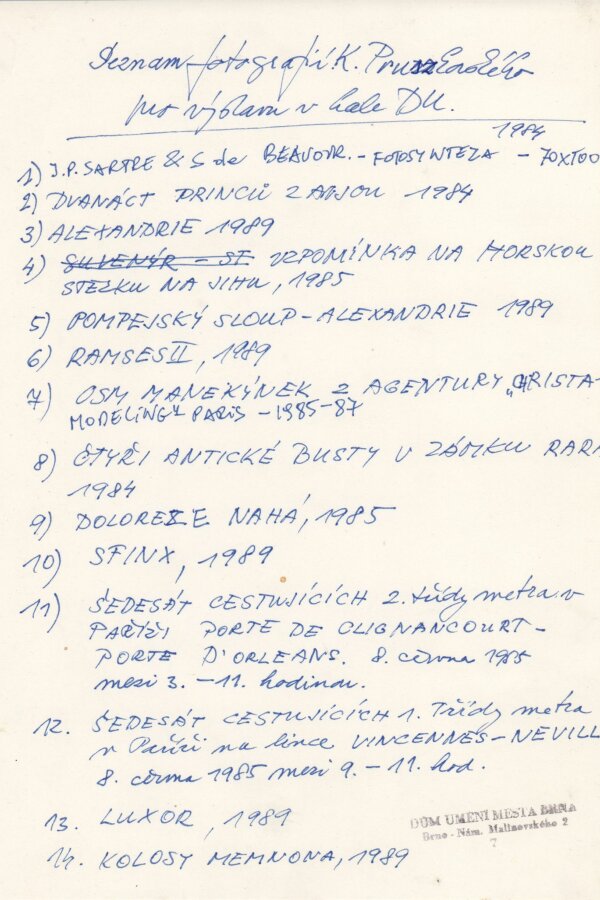 Seznam fotografií K. Pruszkovského
pro výstavu v hale DU.
1984
1) J.P. SARTRE & S de BEAUVOIR. - FOTOSYNTEZA - 70X100
2) DVANÁCT PRINCŮ Z ANJOU 1984
3) ALEXANDRIE 1989
4) SUVENÝR - SE VZPOMÍNKA NA HORSKOU
STEZKU NA JIHU, 1985
5) POMPEJSKÝ SLOUP - ALEXANDRIE 1989
6) RAMSES II, 1989
7) OSM MANEKÝNEK Z AGENTURY „CHRISTA-
MODELING" PARIS - 1985-87
8) ČTYŘI ANTICKÉ BUSTY V ZÁMKU RARA
1984
9) DOLOREZE NAHÁ, 1985
10) SFINX, 1989
11) ŠEDESÁT CESTUJÍCÍCH 2. třídy metra v
PAŘÍŽI PORTE DE CLIGNANCOURT -
PORTE D'ORLEANS. 8. června 1985
mezi 3. - 11. hodinou.
12. ŠEDESÁT CESTUJÍCÍCH 1. Třídy metra
v Paříži na lince VINCENNES - NEVILL
8. června 1985 mezi 9. - 11. hod.
13. LUXOR, 1989
14. KOLOSY MEMNONA, 1989
DŮM UMĚNÍ MĚSTA BRNA
Brno - Nám. Malinovského 2
7